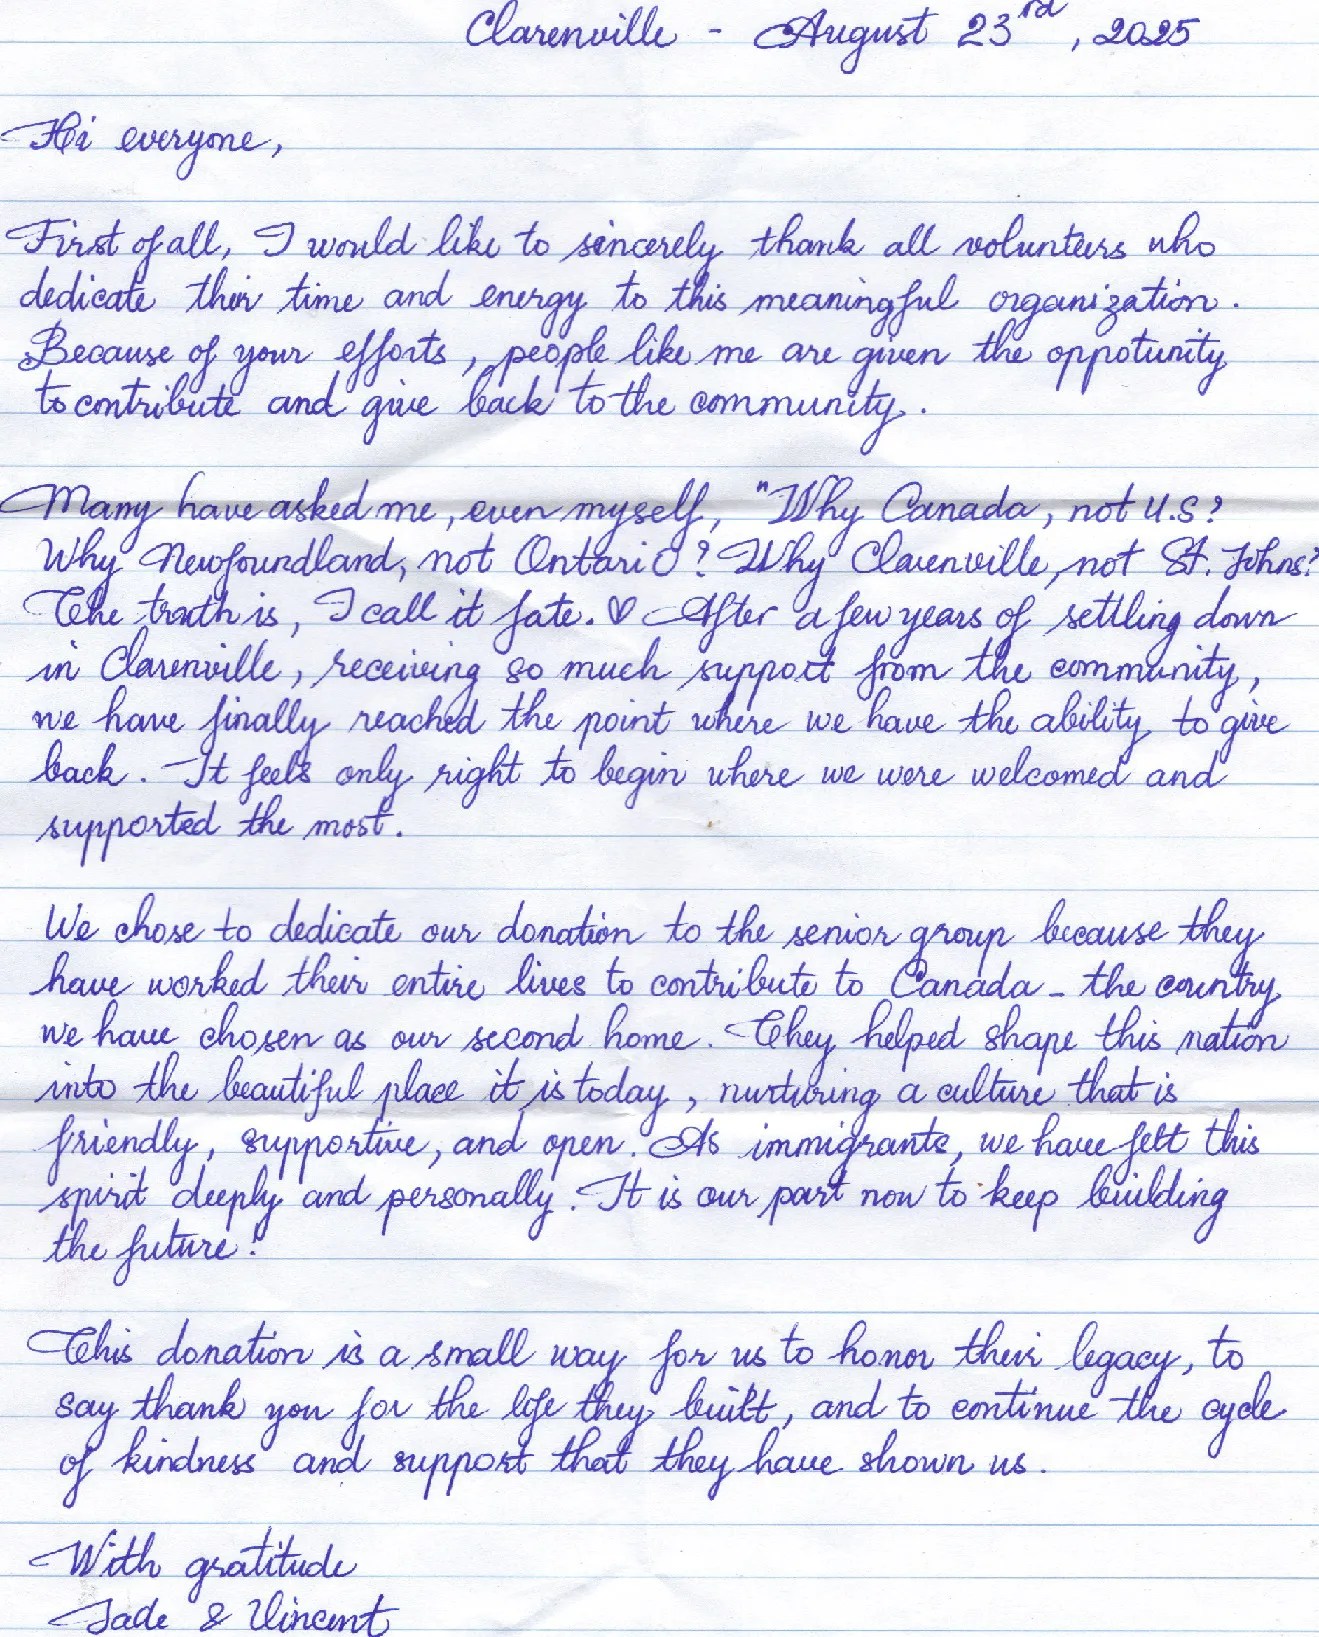 Clarenville - August 23rd, 2025
Hi everyone,
First of all, I would like to sincerely thank all volunteers who
dedicate their time and energy to this meaningful organization.
Because of your efforts, people like me are given the oppotunity
to contribute and give back to the community.
Many have asked me, even myself, "Why Canada, not U.S?
Why Newfoundland, not Ontario? Why Clarenville, not St. Johns?
The truth is, I call it fate.♡ After a few years of settling down
in Clarenville, receiving so much support from the community,
we have finally reached the point where we have the ability to give
back. It feels only right to begin where we were welcomed and
supported the most.
We chose to dedicate our donation to the senior group because they
have worked their entire lives to contribute to Canada - the country
we have chosen as our second home. They helped shape this nation
into the beautiful place it is today, nurturing a culture that is
friendly, supportive, and open. As immigrants, we have felt this
spirit deeply and personally. It is our part now to keep building
the future!
This donation is a small way for us to honor their legacy, to
say thank you for the life they built, and to continue the cycle
of kindness and support that they have shown us.
With gratitude
Jade & Vincent